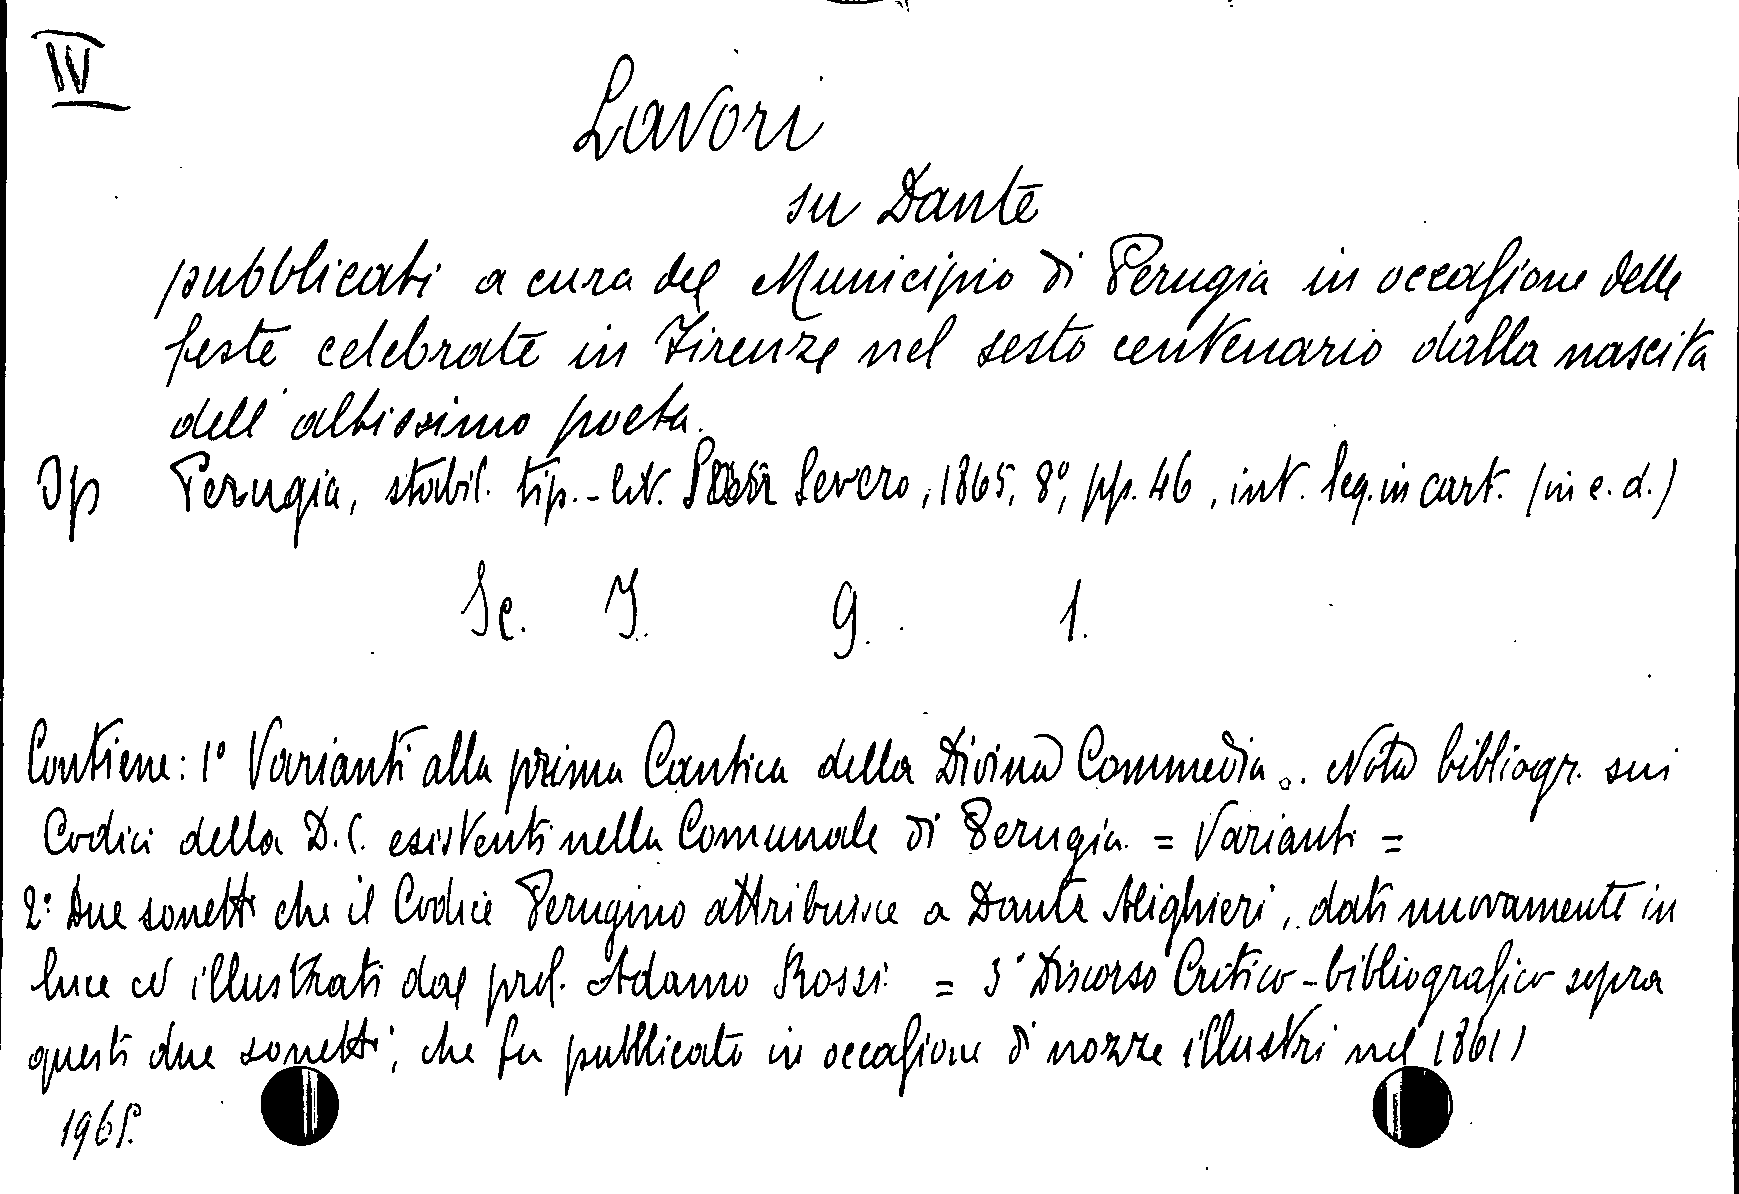 IV
Lavori
su Dante
pubblicati a cura del Municipio di Perugia in occasione delle
feste celebrate in Firenze nel sesto centenario dalla nascita
dell'altissimo poeta.
Op Perugia, stabil. tip.-lit. Severo, 1865, 8°, pp. 46, int. leg. in cart. (in c. d.)
Sc. I. 9. 1.
Contiene: 1° Varianti alla prima Cantica della Divina Commedia. Nota bibliogr. sui
Codici della D.C. esistenti nella Comunale di Perugia = Varianti =
2° Due sonetti che il Codice Perugino attribuisce a Dante Alighieri, dati nuovamente in
luce ed illustrati dal prof. Adamo Rossi = 3° Discorso Critico-bibliografico sopra
questi due sonetti, che fu pubblicato in occasione di nozze illustri nel 1861)